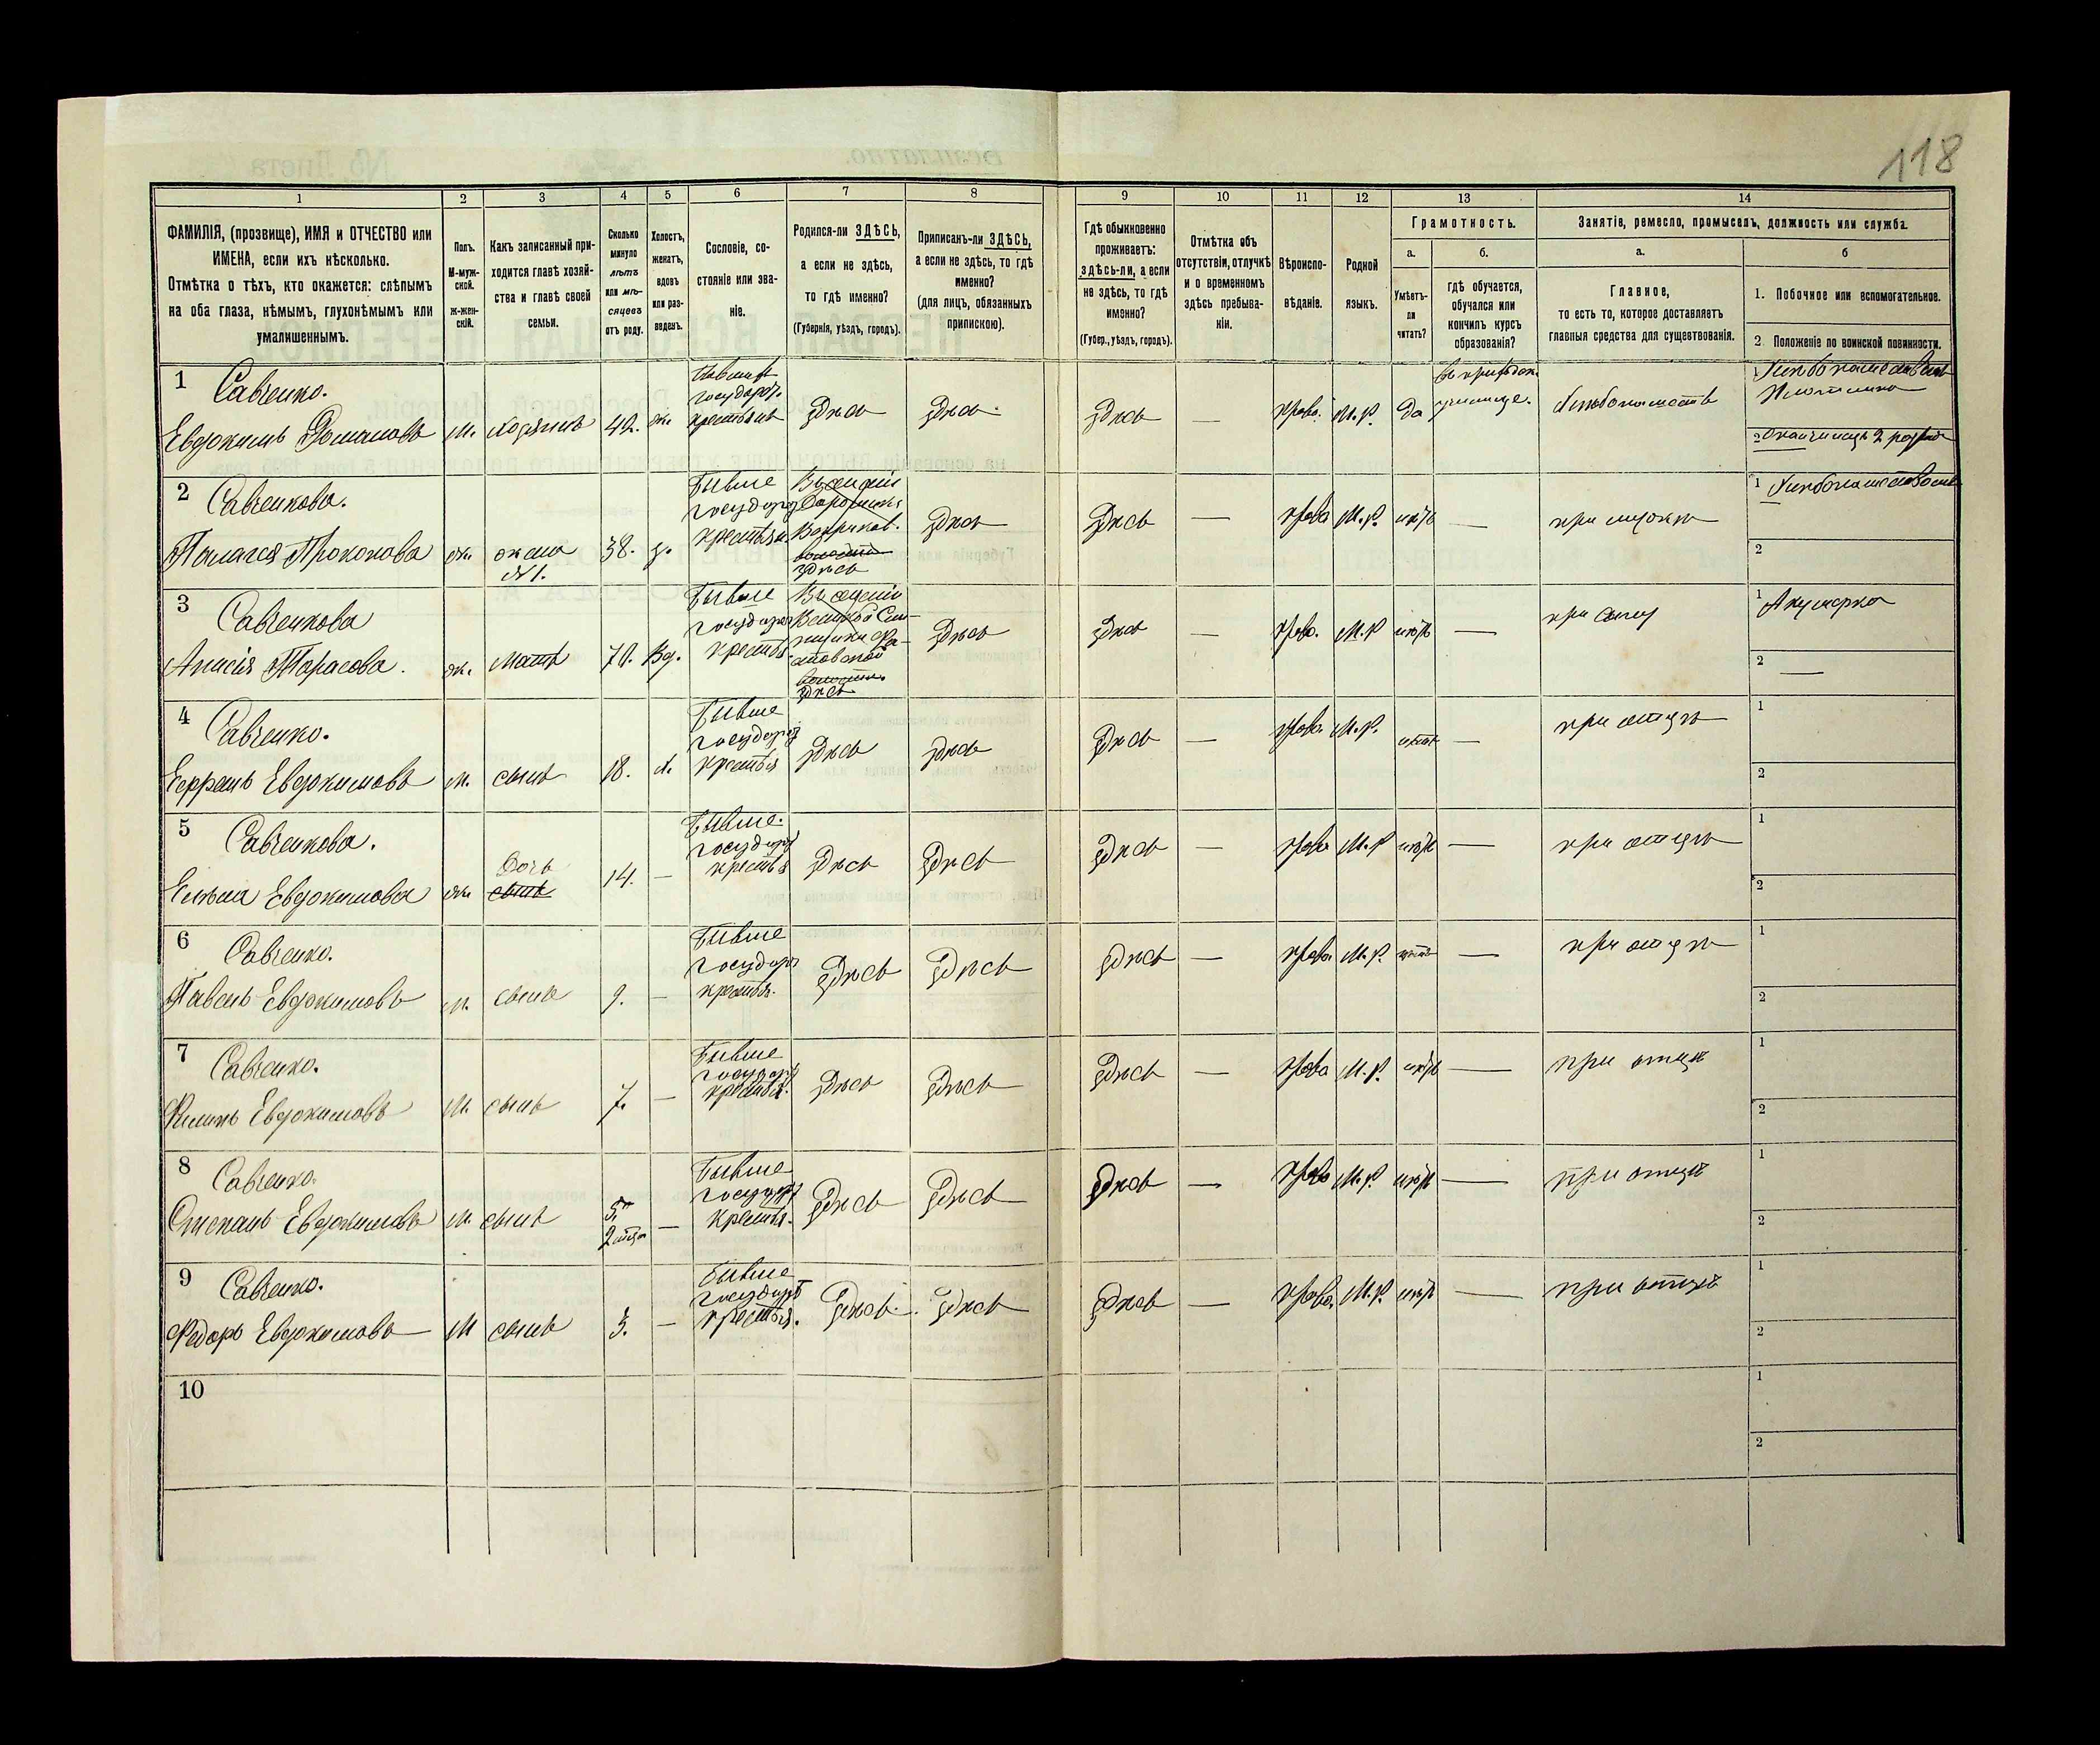 118
1
2
3
4
5
6
7
8
9
10
11
12
13
14
ФАМИЛІЯ, (прозвище), ИМЯ и ОТЧЕСТВО или
ИМЕНА, если ихъ нѣсколько.
Отмѣтка о тѣхъ, кто окажется: слѣпымъ
на оба глаза, нѣмымъ, глухонѣмымъ или
умалишеннымъ.
Полъ.
М-муж-
ской.
ж-жен-
скій.
Какъ записанный при-
ходится главѣ хозяй-
ства и главѣ своей
семьи.
Сколько
минуло
лѣтъ
или мѣ-
сяцевъ
отъ роду.
Холостъ,
женатъ,
вдовъ
или раз-
веденъ.
Сословіе, со-
стояніе или зва-
ніе.
Родился-ли ЗДѢСЬ,
а если не здѣсь,
то гдѣ именно?
(Губернія, уѣздъ, городъ).
Приписанъ-ли ЗДѢСЬ,
а если не здѣсь, то гдѣ
именно?
(для лицъ, обязанныхъ
припискою).
Гдѣ обыкновенно
проживаетъ:
здѣсь-ли, а если
не здѣсь, то гдѣ
именно?
(Губер., уѣздъ, городъ).
Отмѣтка объ
отсутствіи, отлучкѣ
и о временномъ
здѣсь пребыва-
ніи.
Вѣроиспо-
вѣданіе.
Родной
языкъ.
Грамотность.
а.
Умѣетъ-
ли
читать?
б.
гдѣ обучается,
обучался или
кончилъ курсъ
образованія?
Занятіе, ремесло, промыселъ, должность или служба.
а.
Главное,
то есть то, которое доставляетъ
главныя средства для существованія.
б
1. Побочное или вспомогательное.
2. Положеніе по воинской повинности.
1
Савченко.
Евдокимъ Романовъ
м.
хозяинъ
42.
ж.
государ.
здѣсь
здѣсь
здѣсь
—
право.
М.Р.
да
училище.
1
2
2
Савченкова.
Палагея Прокопова
ж.
жена
№1.
38.
з.
Бывше
государ
крестьян.
здѣсь
здѣсь
здѣсь
—
права
М.Р.
нѣтъ
—
при мужѣ
1
2
3
Савченкова
Анисія Тарасова.
ж.
мать
70.
Вд.
Бывше
государ
крестья
здѣсь
здѣсь
здѣсь
—
право.
М.Р
нѣтъ
—
при сыну
1
Акушерка
2
—
4
Савченко.
Евдокимовъ
м.
сынъ
18.
х.
Бывше
государ
крестья
здѣсь
здѣсь
здѣсь
—
права
М.Р.
нѣтъ
—
при отцѣ
1
2
5
Савченкова.
Евдокимова
ж.
Дочь
сынъ
14.
—
Бывше.
государ
крестья
здѣсь
здѣсь
здѣсь
—
права
М.Р
нѣтъ
—
при отцѣ
1
2
6
Савченко.
Павелъ Евдокимовъ
м.
сынъ
9.
—
Бывше
государ
крестья.
здѣсь
здѣсь
здѣсь
—
права
М.Р.
нѣтъ
—
при отцѣ
1
2
7
Савченко.
Филипъ Евдокимовъ
м.
сынъ
7.
—
Бывше
государ
крестья.
здѣсь
здѣсь
здѣсь
—
права
М.Р.
нѣтъ
—
при отцѣ
1
2
8
Савченко.
Степанъ Евдокимовъ
м.
сынъ
5.
—
Бывше
государ
крестья.
здѣсь
здѣсь
здѣсь
—
права
М.Р.
нѣтъ
—
при отцѣ
1
2
9
Савченко.
Федоръ Евдокимовъ
м
сынъ
3.
—
Бывше
государ
крестья.
здѣсь
здѣсь
здѣсь
—
права
М.Р.
нѣтъ
—
при отцѣ
1
2
10
1
2